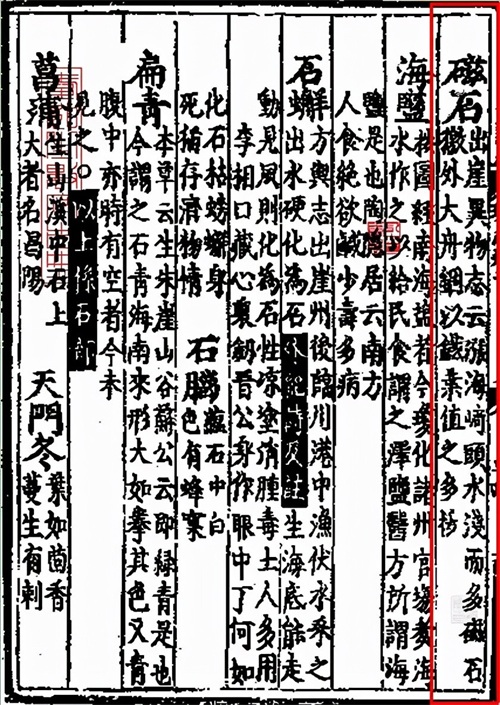 磁石 出崖異物志云漲海崎頭水淺而多磁石
徼外大舟錮以鐵葉值之多拔
海鹽 按圖經南海鹽者今化諸州官場煑海
水作之以給民食謂之澤鹽醫方所謂海
鹽是也陶隱居云南方
人食絶欲鹹少壽多病
石蠏 方輿志出崖州後臨川港中漁伏水采之
出水硬化為石 絶詩反註 生海底能走
動見風則化為石性凉塗消腫毒士人多用
李相口藏心裏剱晉公身作眼中丁何如
化石枯螃蠏身
死猶存濟物情
石腦 蘊石中白
色有蜂窠
扁青 本草云生朱崖山谷蘇公云即緑青是也
今謂之石青海南來形大如拳其色又青
腹中亦時有空者今未
見之〇以上係石部
菖蒲 生山溪中石上
大者名昌陽
天門冬 葉如茴香
蔓生有刺